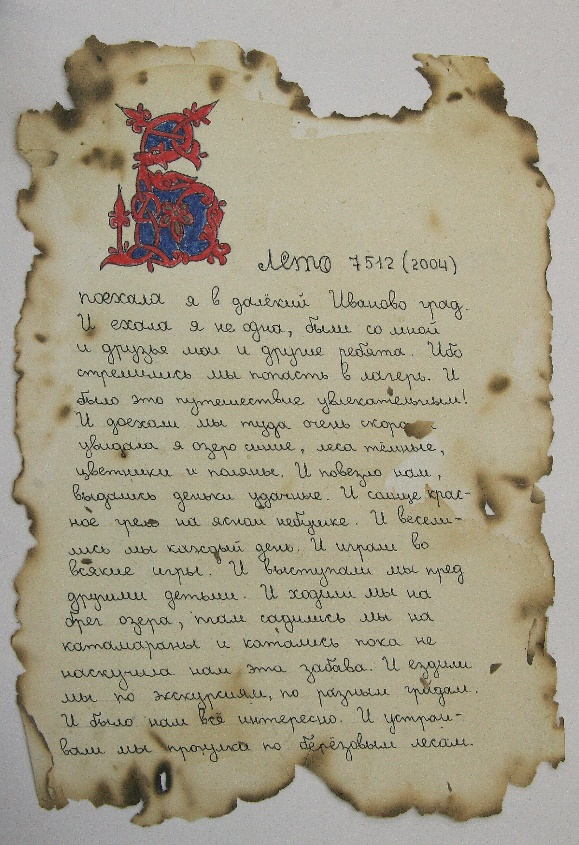 В
Лето 7512 (2004)
поехала я в далёкий Иваново град.
И ехала я не одна, были со мной
и друзья мои и другие ребята. Ибо
стремились мы попасть в лагерь. И
было это путешествие увлекательным!
И доехали мы туда очень скоро
увидала я озеро синие, леса тёмные,
цветники и поляны. И повезло нам,
выдались деньки удачные. И солнце крас-
ное грело на ясном небушке. И весели-
лись мы каждый день. И играли во
всякие игры. И выступали мы пред
другими детьми. И ходили мы на
брег озера, там садились мы на
катамараны и катались пока не
наскучила нам эта забава. И ездили
мы по экскурсиям, по разным градам.
И было нам всё интересно. И устраи-
вали мы прогулки по берёзовым лесам.